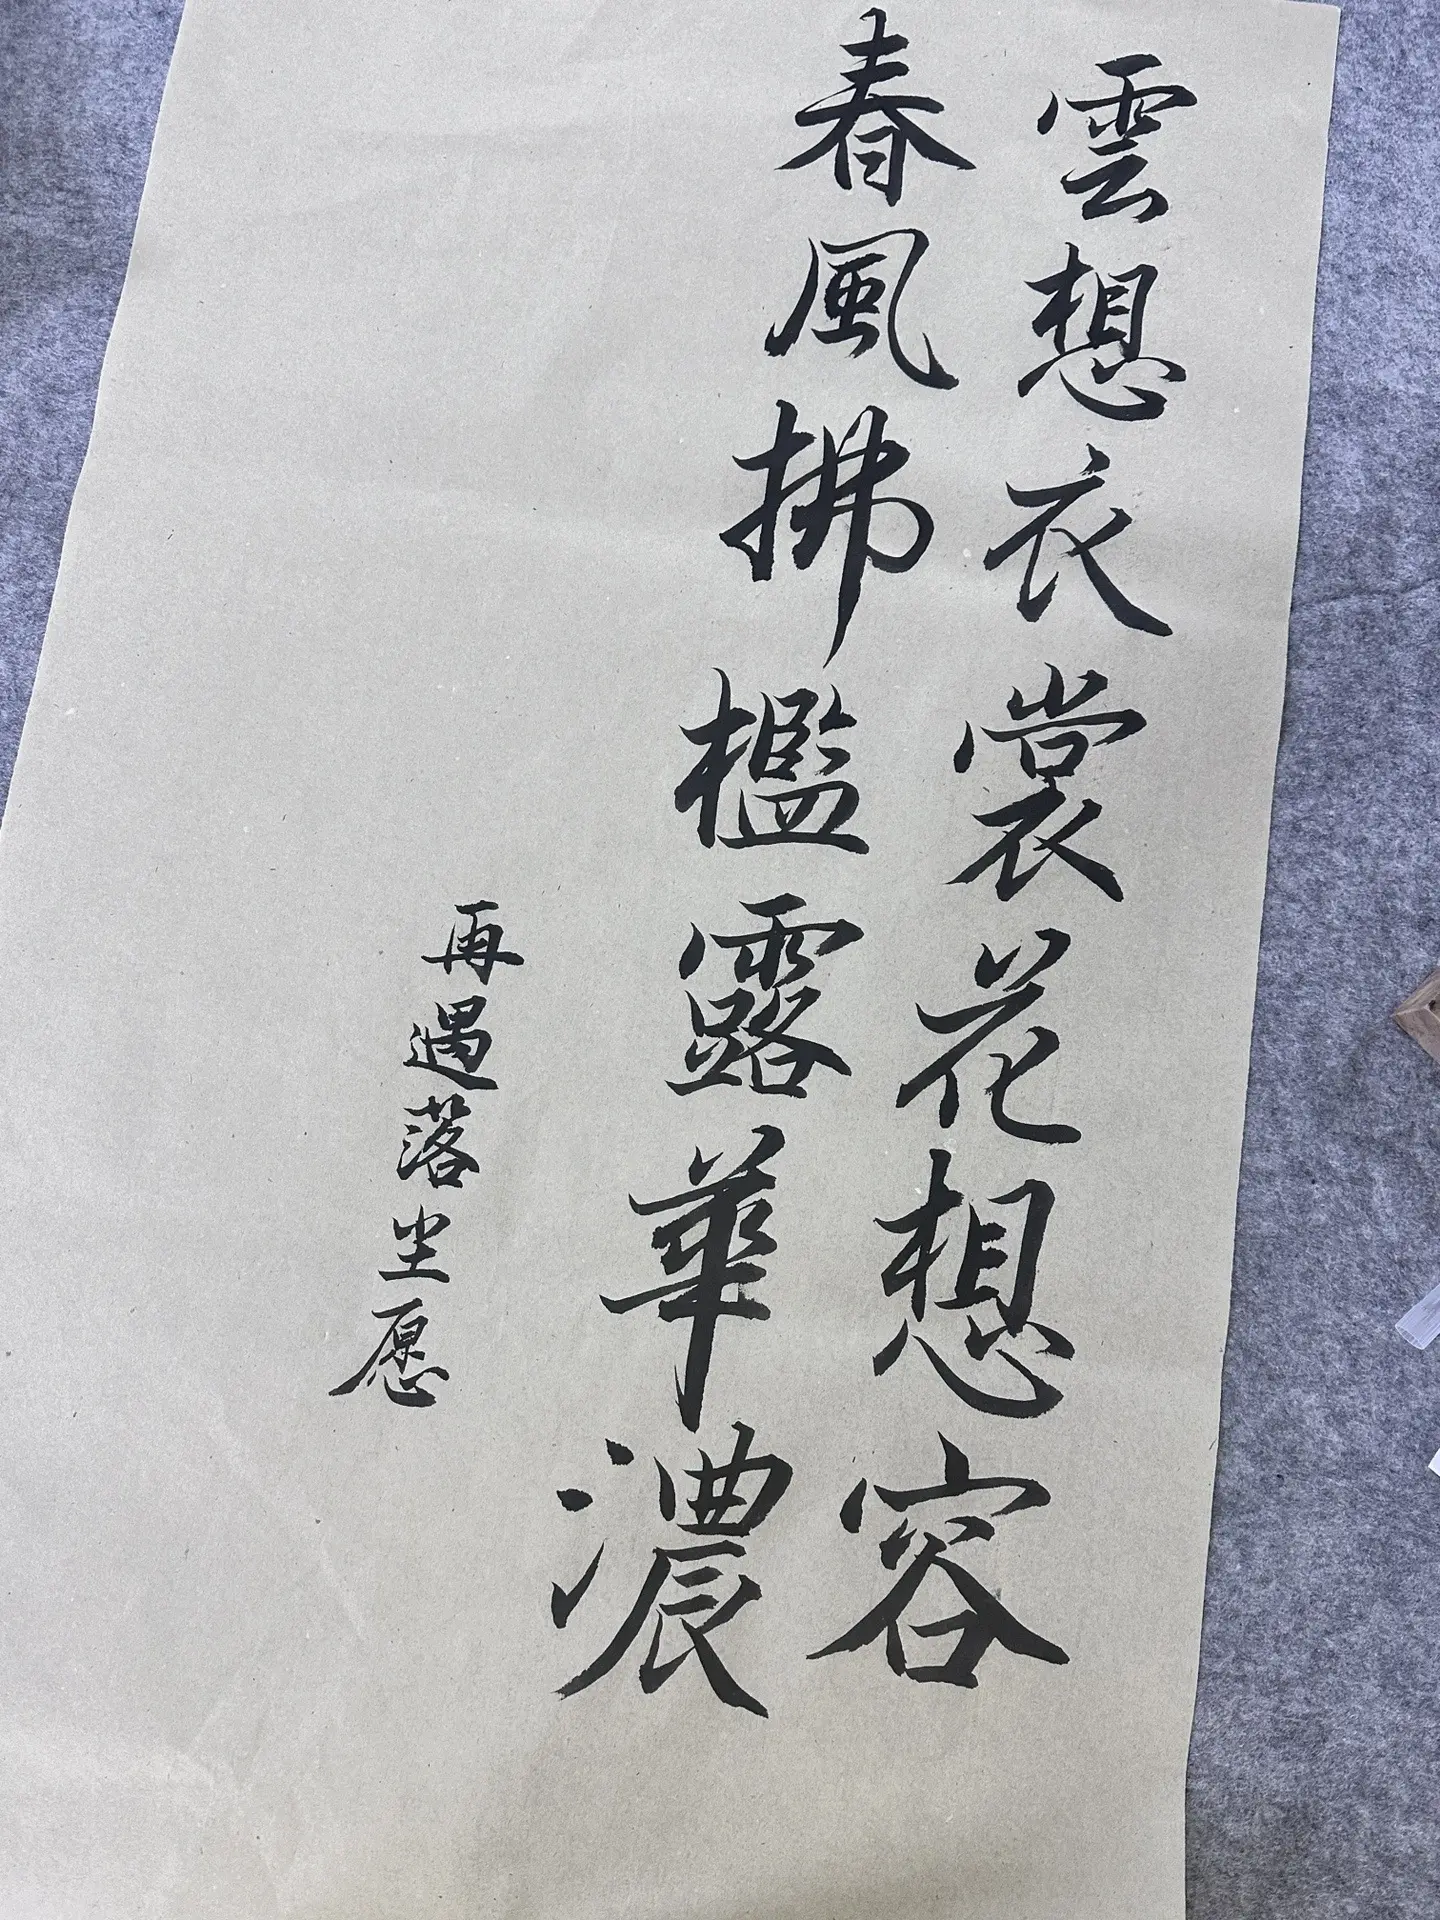 雲想衣裳花想容
春風拂檻露華濃
再遇落尘愿